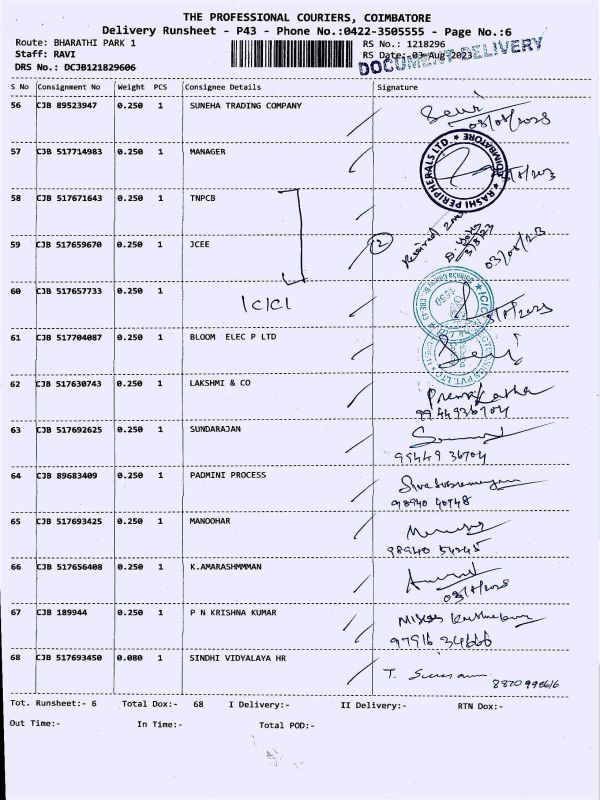 THE PROFESSIONAL COURIERS, COIMBATORE
Delivery Runsheet - P43 - Phone No.:0422-3505555 - Page No.:6
Route: BHARATHI PARK 1 RS No.: 1218296
Staff: RAVI RS Date:-03-Aug-2023
DRS No.: DCJB121829606 DOCUMENT DELIVERY
S No Consignment No Weight PCS Consignee Details Signature
56 CJB 89523947 0.250 1 SUNEHA TRADING COMPANY
03/08/2023
57 CJB 517714983 0.250 1 MANAGER
RASHI PERIPHERALS LTD COIMBATORE
58 CJB 517671643 0.250 1 TNPCB
59 CJB 517659670 0.250 1 JCEE
2 Received
03/08/23
60 CJB 517657733 0.250 1
ICICI
61 CJB 517704087 0.250 1 BLOOM ELEC P LTD
62 CJB 517630743 0.250 1 LAKSHMI & CO
99449 36704
63 CJB 517692625 0.250 1 SUNDARAJAN
99449 36704
64 CJB 89683409 0.250 1 PADMINI PROCESS
65 CJB 517693425 0.250 1 MANOOHAR
98940 54245
66 CJB 517656408 0.250 1 K.AMARASHMMMAN
67 CJB 189944 0.250 1 P N KRISHNA KUMAR
97916 34666
68 CJB 517693450 0.080 1 SINDHI VIDYALAYA HR
Tot. Runsheet:- 6 Total Dox:- 68 I Delivery:- II Delivery:- RTN Dox:-
Out Time:- In Time:- Total POD:-